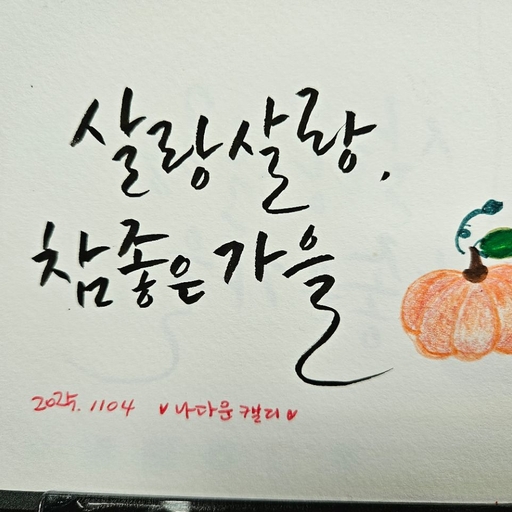 살랑살랑,
참좋은가을
2025. 1104 ♥나다운캘리♥